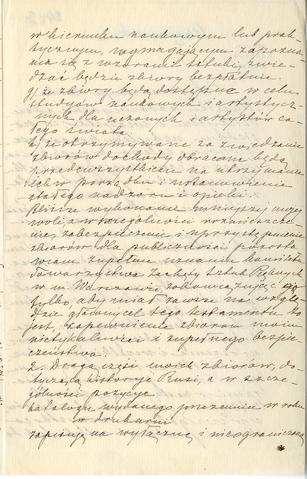 w kierunku naukowym lub prak-
tycznym, wymagającym zapozna-
nia się z wzorami sztuki, zwie-
dzać będzie zbiory bezpłatnie.
g/ że zbiory będą dostępne w celu
studyów naukowych i artystycz-
nych dla uczonych i artystów ca-
łego świata
h/ że otrzymywane za zwiedzanie
zbiorów dochody obracane będą
przedewszystkiem na utrzymywanie
ich w porządku i ustanowienie
stałego nadzoru i opieki.
Bliższe wykonanie niniejszej mojej
woli, a w szczególności rozmieszcze-
nie, zabezpieczenie i uprzystępnienie
zbiorów dla publiczności pozosta-
wiam zupełnie uznaniu komitetu
Towarzystwa Zachęty Sztuk Pięknych
w m. Warszawie zobowiązując go
tylko aby miał zawsze na wzglę-
dzie główny cel tego testamentu to
jest, zapewnienie zbiorom moim
nietykalności i zupełnego bezpie-
czeństwa.
2. Drugą część moich zbiorów, do-
tyczącą historyi Rusi, a w szcze-
gólności pozycye
katalogu wydanego przezemnie w roku
w drukarni
zapisuję na wyłączną i nieograniczoną